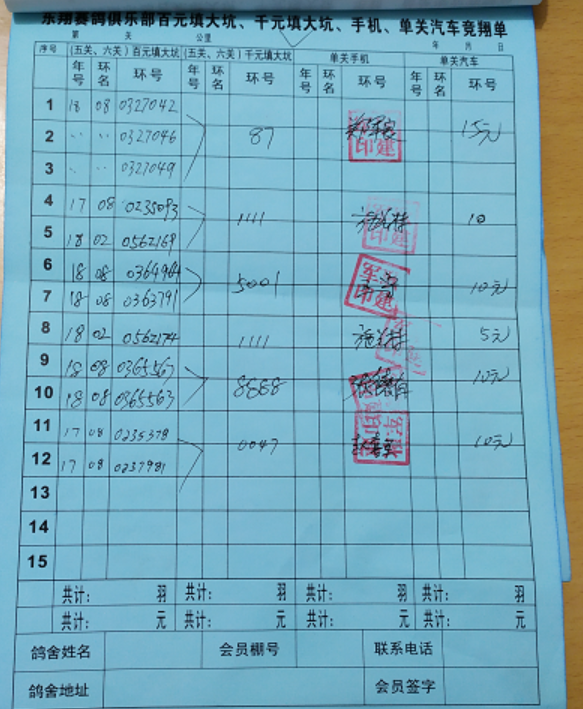 东翔赛鸽俱乐部百元填大坑、千元填大坑、手机、单关汽车竞翔单
第 关 公里 年 月 日
序号 (五关、六关)百元填大坑 (五关、六关)千元填大坑 单关手机 单关汽车
年号 环名 环号 年号 环名 环号 年号 环名 环号 年号 环名 环号
1 18 08 0327042
2 ›› ›› 0327046 87 15元
3 ›› ›› 0327049
4 17 08 0235093 1111 10
5 18 02 0562169
6 18 08 5001 10元
7 18 08 0363791
8 18 02 0562174 1111 5元
9 18 08 0365567 8888 10元
10 18 08 0365563
11 17 08 0235378 0047 10元
12 17 08 0237981
13
14
15
共计: 羽 共计: 羽 共计: 羽 共计: 羽
共计: 元 共计: 元 共计: 元 共计: 元
鸽舍姓名 会员棚号 联系电话
鸽舍地址 会员签字